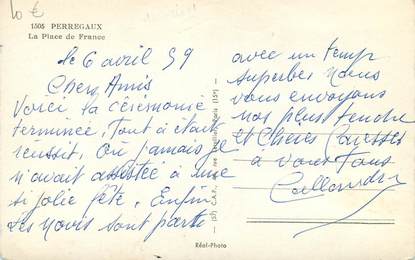 10 €
1505 PERREGAUX
La Place de France
le 6 avril 59
Chers Amis
Voici la cérémonie
terminée, tout a était
réussit. Où jamais je
n'avait assistée à une
si jolie fête. Enfin
Les Novis sont parti
avec un temp
superbe nous
vous envoyons
nos plus tendre
et Chères Caresses
à vous Tous
Réal-Photo